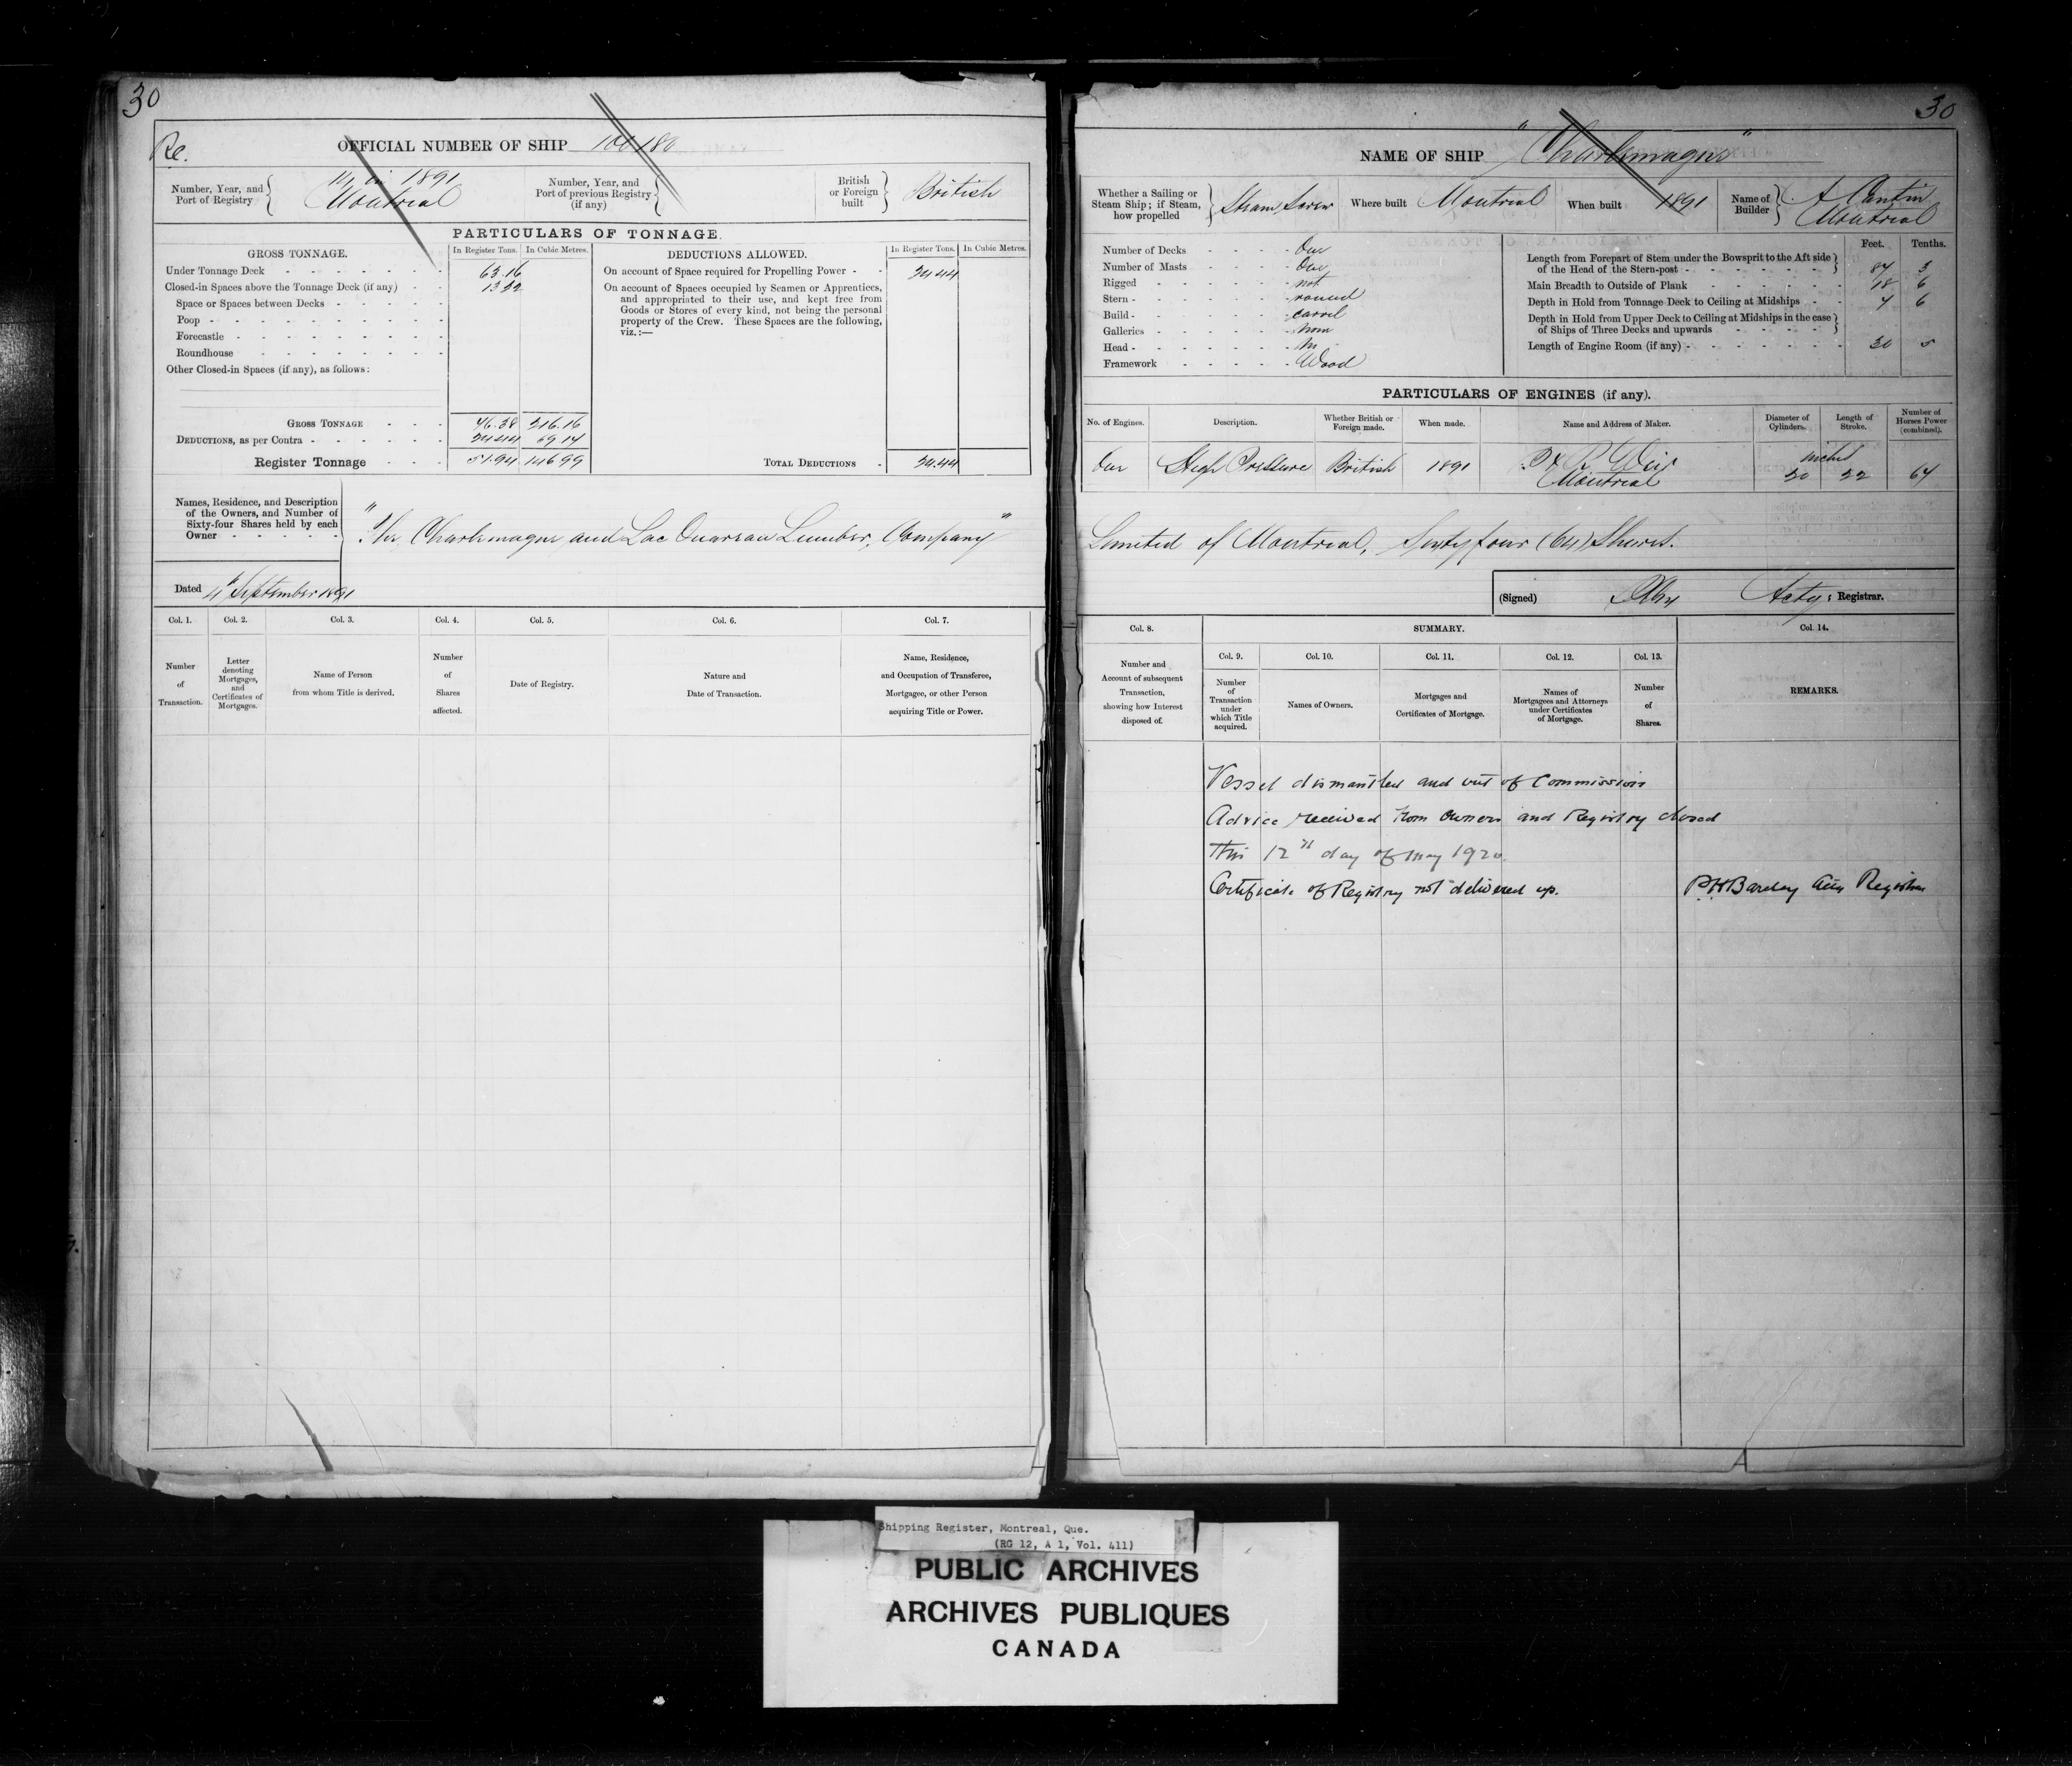 30
Re.
OFFICIAL NUMBER OF SHIP 100180
Number, Year, and Port of Registry
in 1891
Montreal
Number, Year, and Port of previous Registry (if any)
British or Foreign built
British
PARTICULARS OF TONNAGE.
GROSS TONNAGE.
In Register Tons. In Cubic Metres.
Under Tonnage Deck 63.16
Closed-in Spaces above the Tonnage Deck (if any) 13 22
Space or Spaces between Decks
Poop
Forecastle
Roundhouse
Other Closed-in Spaces (if any), as follows:
GROSS TONNAGE 76.38 216.16
DEDUCTIONS, as per Contra 24.44 69.17
Register Tonnage 51.94 146.99
DEDUCTIONS ALLOWED.
In Register Tons. In Cubic Metres.
On account of Space required for Propelling Power 24.44
On account of Spaces occupied by Seamen or Apprentices,
and appropriated to their use, and kept free from
Goods or Stores of every kind, not being the personal
property of the Crew. These Spaces are the following,
viz.:—
TOTAL DEDUCTIONS 24.44
Names, Residence, and Description
of the Owners, and Number of
Sixty-four Shares held by each
Owner
"The Charlemagne and Lac Ouareau Lumber, Company"
Dated 4th September 1891
Col. 1. Col. 2. Col. 3. Col. 4. Col. 5. Col. 6. Col. 7.
Number of Transaction.
Letter denoting Mortgages, and Certificates of Mortgages.
Name of Person from whom Title is derived.
Number of Shares affected.
Date of Registry.
Nature and Date of Transaction.
Name, Residence, and Occupation of Transferee, Mortgagee, or other Person acquiring Title or Power.
30
NAME OF SHIP "Charlemagne"
Whether a Sailing or Steam Ship; if Steam, how propelled
Steam Screw
Where built Montreal
When built 1891
Name of Builder
A Cantin
Montreal
Number of Decks One
Number of Masts One
Rigged not
Stern round
Build carvel
Galleries none
Head no
Framework Wood
Feet. Tenths.
Length from Forepart of Stem under the Bowsprit to the Aft side
of the Head of the Stern-post 87 3
Main Breadth to Outside of Plank 18 6
Depth in Hold from Tonnage Deck to Ceiling at Midships 7 6
Depth in Hold from Upper Deck to Ceiling at Midships in the case
of Ships of Three Decks and upwards
Length of Engine Room (if any) 20 5
PARTICULARS OF ENGINES (if any).
No. of Engines. Description. Whether British or Foreign made. When made. Name and Address of Maker. Diameter of Cylinders. Length of Stroke. Number of Horses Power (combined).
One High Pressure British 1891 Weir
Montreal
inches
20 22 67
Limited of Montreal, Sixty four (64) Shares.
(Signed) Actg: Registrar.
Col. 8. SUMMARY. Col. 14.
Col. 9. Col. 10. Col. 11. Col. 12. Col. 13.
Number and Account of subsequent Transaction, showing how Interest disposed of.
Number of Transaction under which Title acquired.
Names of Owners.
Mortgages and Certificates of Mortgage.
Names of Mortgagees and Attorneys under Certificates of Mortgage.
Number of Shares.
REMARKS.
Vessel dismantled and out of Commission
Advice received from Owners and Registry closed
This 12th day of May 1920.
Certificate of Registry not delivered up. Barclay Registrar
Shipping Register, Montreal, Que.
(RG 12, A 1, Vol. 411)
PUBLIC ARCHIVES
ARCHIVES PUBLIQUES
CANADA